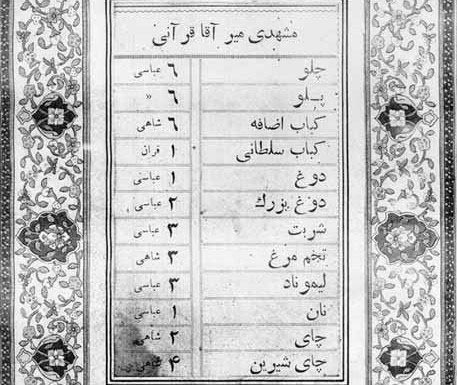 مشهدی میر آقا قرآنی
چلو ۶ عباسی
پلو ۶ «
کباب اضافه ۶ شاهی
کباب سلطانی ۱ قران
دوغ ۱ عباسی
دوغ بزرك ۲ عباسی
شربت ۳ عباسی
تخم مرغ ۳ شاهی
لیمو ناد ۳ عباسی
نان ۱ عباسی
چای ۲ شاهی
چای شیرین ۴ شاهی